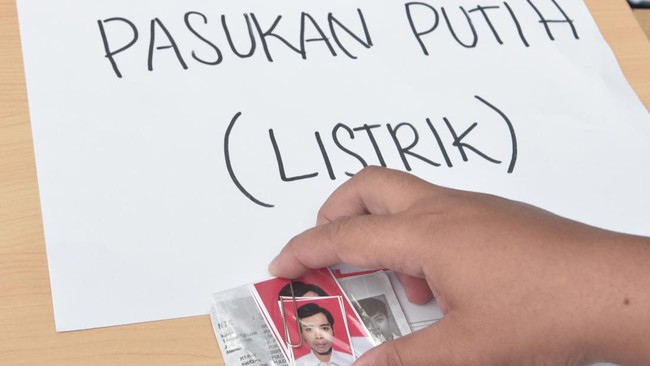 PASUKAN PUTIH
(LISTRIK)